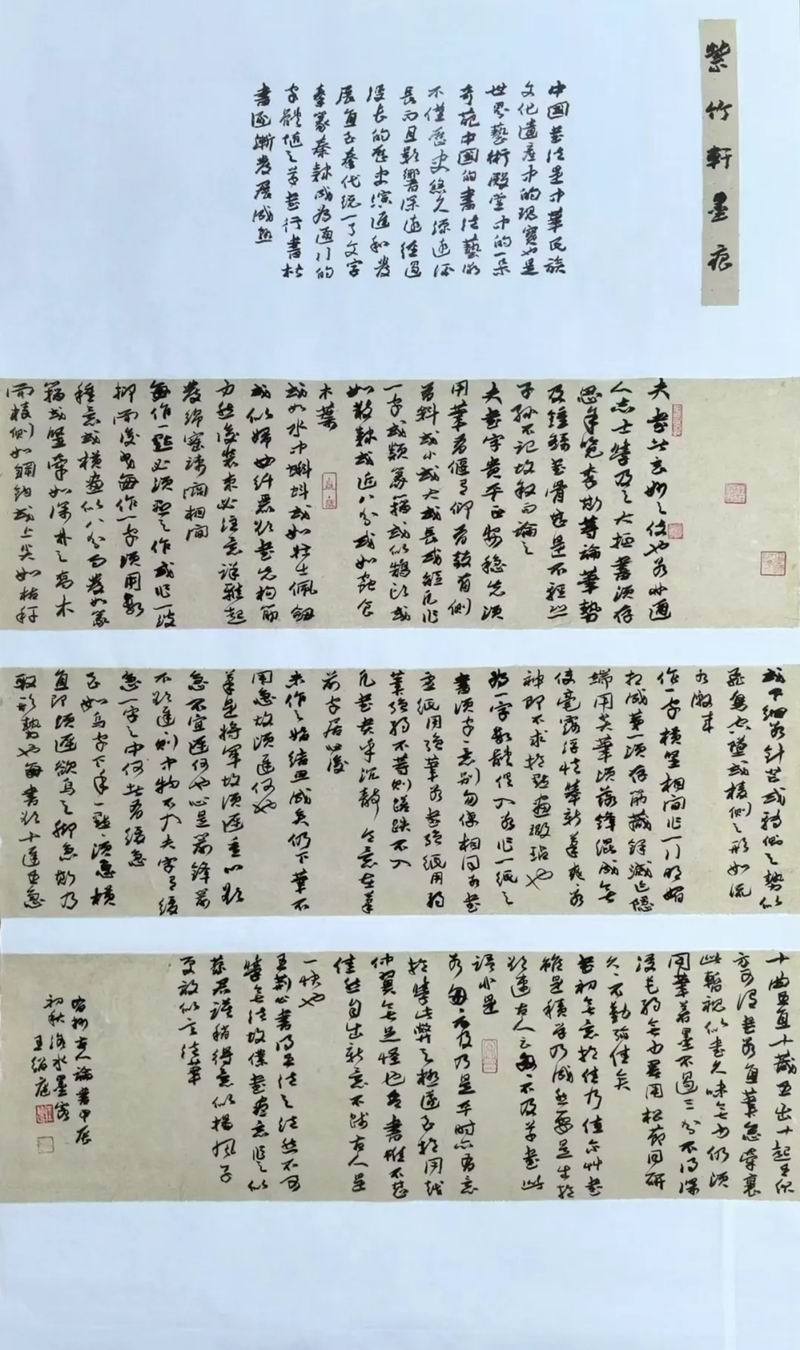 紫竹軒墨痕
中国書法是中華民族
文化遺產中的瑰寶也是
世界藝術殿堂中的一朵
奇葩中国的書法藝術
不僅歷史悠久源遠流
長而且影響深遠經過
漫長的歷史演進和發
展直至秦代統一了文字
秦篆秦隸成為通行的
字體随之草書行書楷
書逐漸發展成熟
夫書者玄妙之伎也若非通
人志士學無及之大抵書須存
思余覽李斯等論筆勢
及鍾繇書骨甚是不輕恐
子孫不記故敘而論之
夫書字貴平正安穩先須
用筆有偃有仰有攲有側
有斜或小或大或長或短凡作
一字或類篆籀或似鵠頭或
如散隸或近八分或如蟲食
木葉
或如水中蝌蚪或如壯士佩劍
或似婦女纖麗欲書先構筋
力然後裝束必注意詳雅起
發綿密疏闊相間
每作一點必須之作或作一波
抑而後曳每作一字須用數
種意或橫畫似八分而發如篆
籀或竪牽如深林之喬木
而棱側如鋼鉤或上尖如枯稈
或下細若針芒或轉側之勢似
飛鳥空墜或棱側之形如流
水激來
作一字橫竪相間作一行明媚
相成第一須存筋藏鋒滅迹隱
端用尖筆須落鋒混成無
使毫露浮怯舉新筆爽爽若
神即不求於點畫瑕玷也
為一字數體俱入若作一紙之
書須字字意別勿使相同若書
虛紙用強筆若書強紙用弱
筆強弱不等則蹉跌不入
凡書貴乎沉靜令意在筆
前字居心後
未作之始結思成矣仍下筆不
用急故須遲何也
筆是將軍故須遲重心欲
急不宜遲何也心是箭鋒箭
不欲遲則中物不入夫字有緩
急一字之中何者有緩急
至如烏字下手一點須急橫
直即須遲欲烏之脚急斯乃
取形勢也每書欲十遲五急
十曲五直十藏五出十起五伏
方可謂書若直筆急牽裹
此暫視似書久味無力仍須
用筆著墨不過三分不得深
浸毛弱無力墨用松節同研
久久不動彌佳矣
書初無意於佳乃佳爾草書
雖是積學乃成然要是出於
欲速古人云匆匆不及草書此
語非是
若匆匆不及乃是平時亦有意
於學此弊之極遂至於周越
仲翼無足怪也吾書雖不甚
佳然自出新意不踐古人是
一快也
王荊公書得無法之法然不可
學無法故僕書盡意作之似
蔡君謨稍得意似楊風子
更放似言法華
古人論書甲辰
初秋洛水墨客